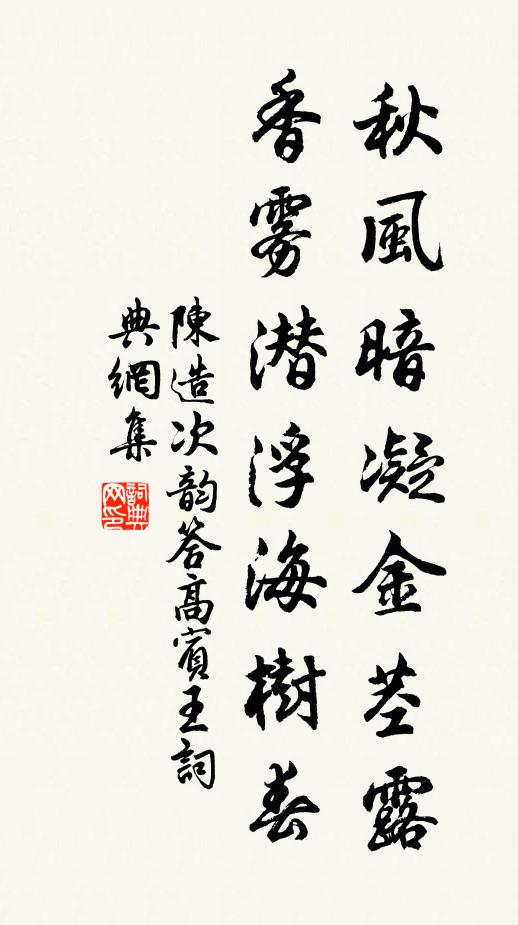 秋風暗凝金莖露
香雾潜浮海樹春
陳造次韵答高賓王詞
典網集
詞典网印